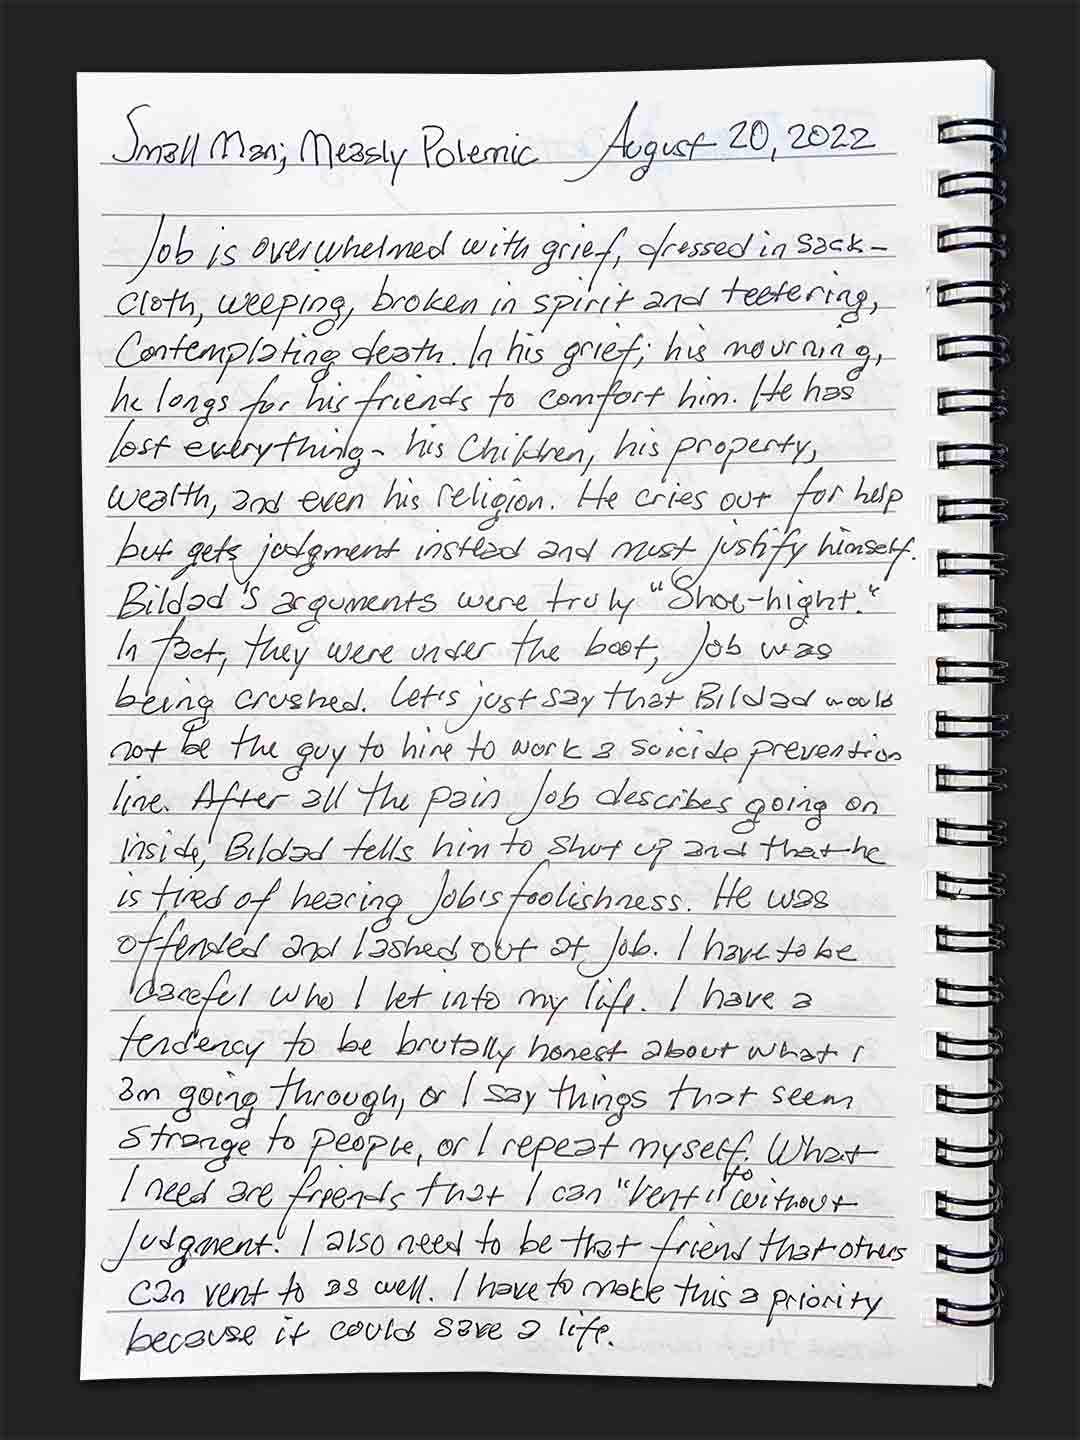 Small Man; Measly Polemic August 20, 2022
Job is overwhelmed with grief, dressed in sack-
cloth, weeping, broken in spirit and teetering,
Contemplating death. In his grief; his mourning,
he longs for his friends to comfort him. He has
lost everything - his Children, his property,
wealth, and even his religion. He cries out for help
but gets judgment instead and must justify himself.
Bildad's arguments were truly "Shoe-hight."
In fact, they were under the boot; Job was
being crushed. Let's just say that Bildad would
not be the guy to hire to work a suicide prevention
line. After all the pain Job describes going on
inside, Bildad tells him to shut up and that he
is tired of hearing Job's foolishness. He was
offended and lashed out at Job. I have to be
careful who I let into my life. I have a
tendency to be brutally honest about what I
am going through, or I say things that seem
strange to people, or I repeat myself. What
I need are friends that I can "vent" to without
judgment. I also need to be that friend that others
can vent to as well. I have to make this a priority
because it could save a life.